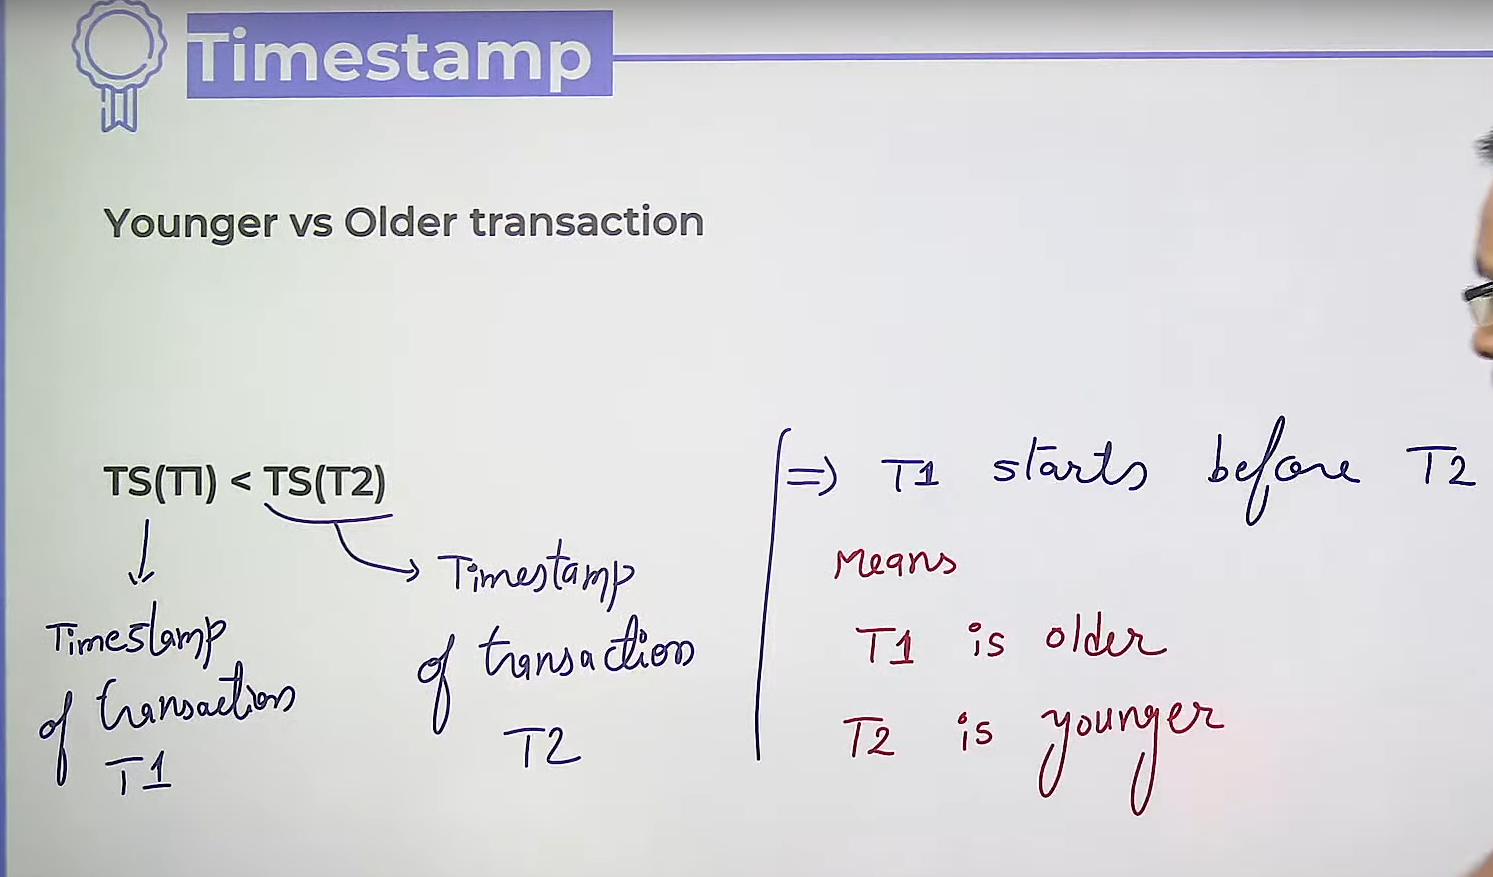 Timestamp
Younger vs Older transaction
TS(T1) < TS(T2)
Timestamp
of transaction
T1
Timestamp
of transaction
T2
=> T1 starts before T2
Means
T1 is older
T2 is younger